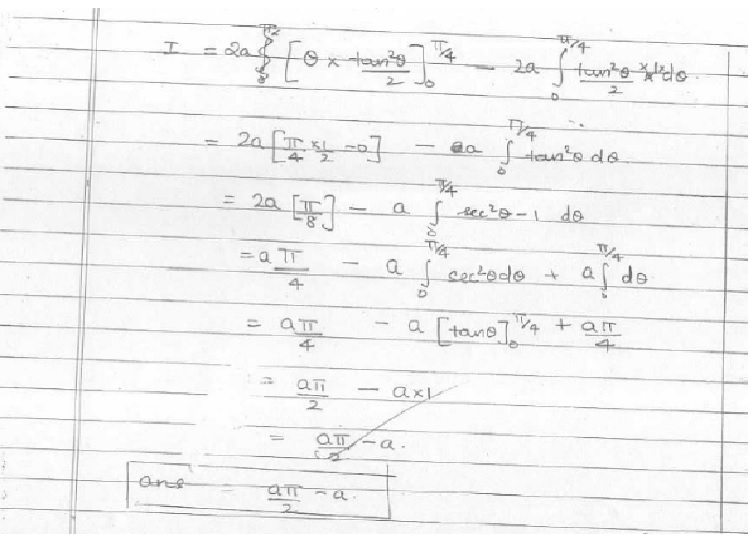 I = 2a [θ × tan²θ/2]₀^π/4 − 2a ∫₀^π/4 tan²θ/2 dθ.
= 2a [π/4 × 1/2 − 0] − a ∫₀^π/4 tan²θ dθ
= 2a [π/8] − a ∫₀^π/4 sec²θ − 1 dθ
= a π/4 − a ∫₀^π/4 sec²θ dθ + a ∫₀^π/4 dθ
= aπ/4 − a [tanθ]₀^π/4 + aπ/4
= aπ/2 − a×1
= aπ/2 − a.
ans = aπ/2 − a.